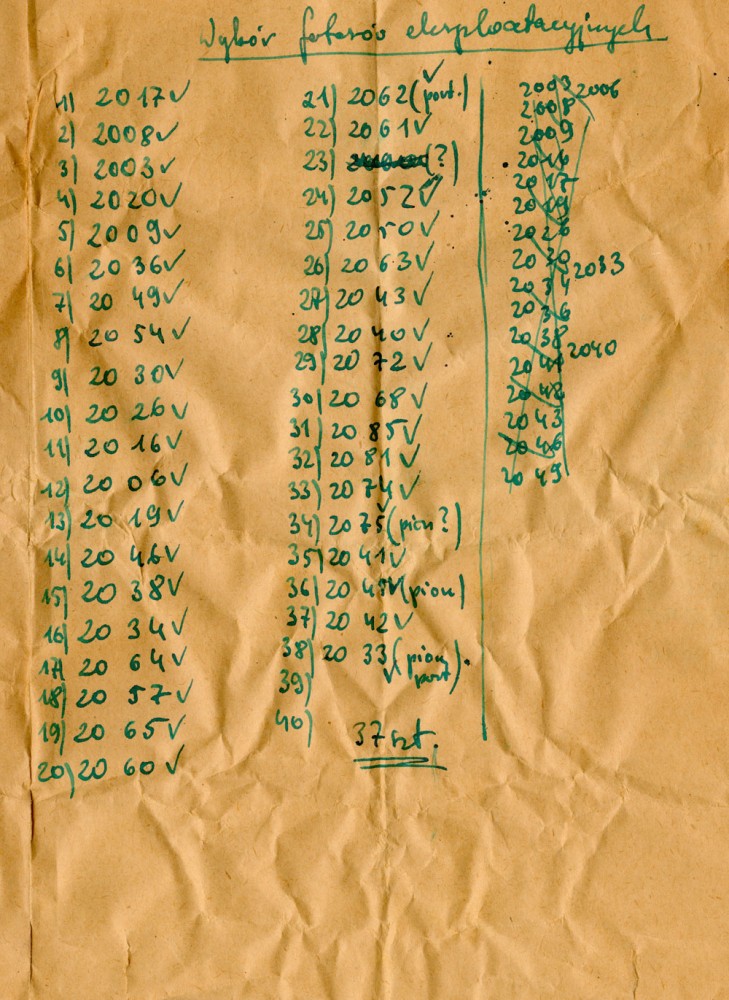 Wybór fotosów eksploatacyjnych
1) 2017 ✓
2) 2008 ✓
3) 2003 ✓
4) 2020 ✓
5) 2009 ✓
6) 2036 ✓
7) 20 49 ✓
8) 20 54 ✓
9) 20 30 ✓
10) 20 26 ✓
11) 20 16 ✓
12) 20 06 ✓
13) 20 19 ✓
14) 20 46 ✓
15) 20 38 ✓
16) 20 34 ✓
17) 20 64 ✓
18) 20 57 ✓
19) 20 65 ✓
20) 20 60 ✓
21) 2062 ✓ (port.)
22) 2061 ✓
23) (?)
24) 2052 ✓
25) 2050 ✓
26) 20 63 ✓
27) 20 43 ✓
28) 20 40 ✓
29) 20 72 ✓
30) 20 68 ✓
31) 20 85 ✓
32) 20 81 ✓
33) 20 74 ✓
34) 20 75 ✓ (pion?)
35) 20 41 ✓
36) 20 45 ✓ (pion)
37) 20 42 ✓
38) 20 33 ✓ (pion, port).
39)
40)
37 szt.
2003 2006
2008
2009
2016
2017
2019
2026
20 30
20 34 2033
20 36
20 38
20 2040
20
20 43
20 46
20 49